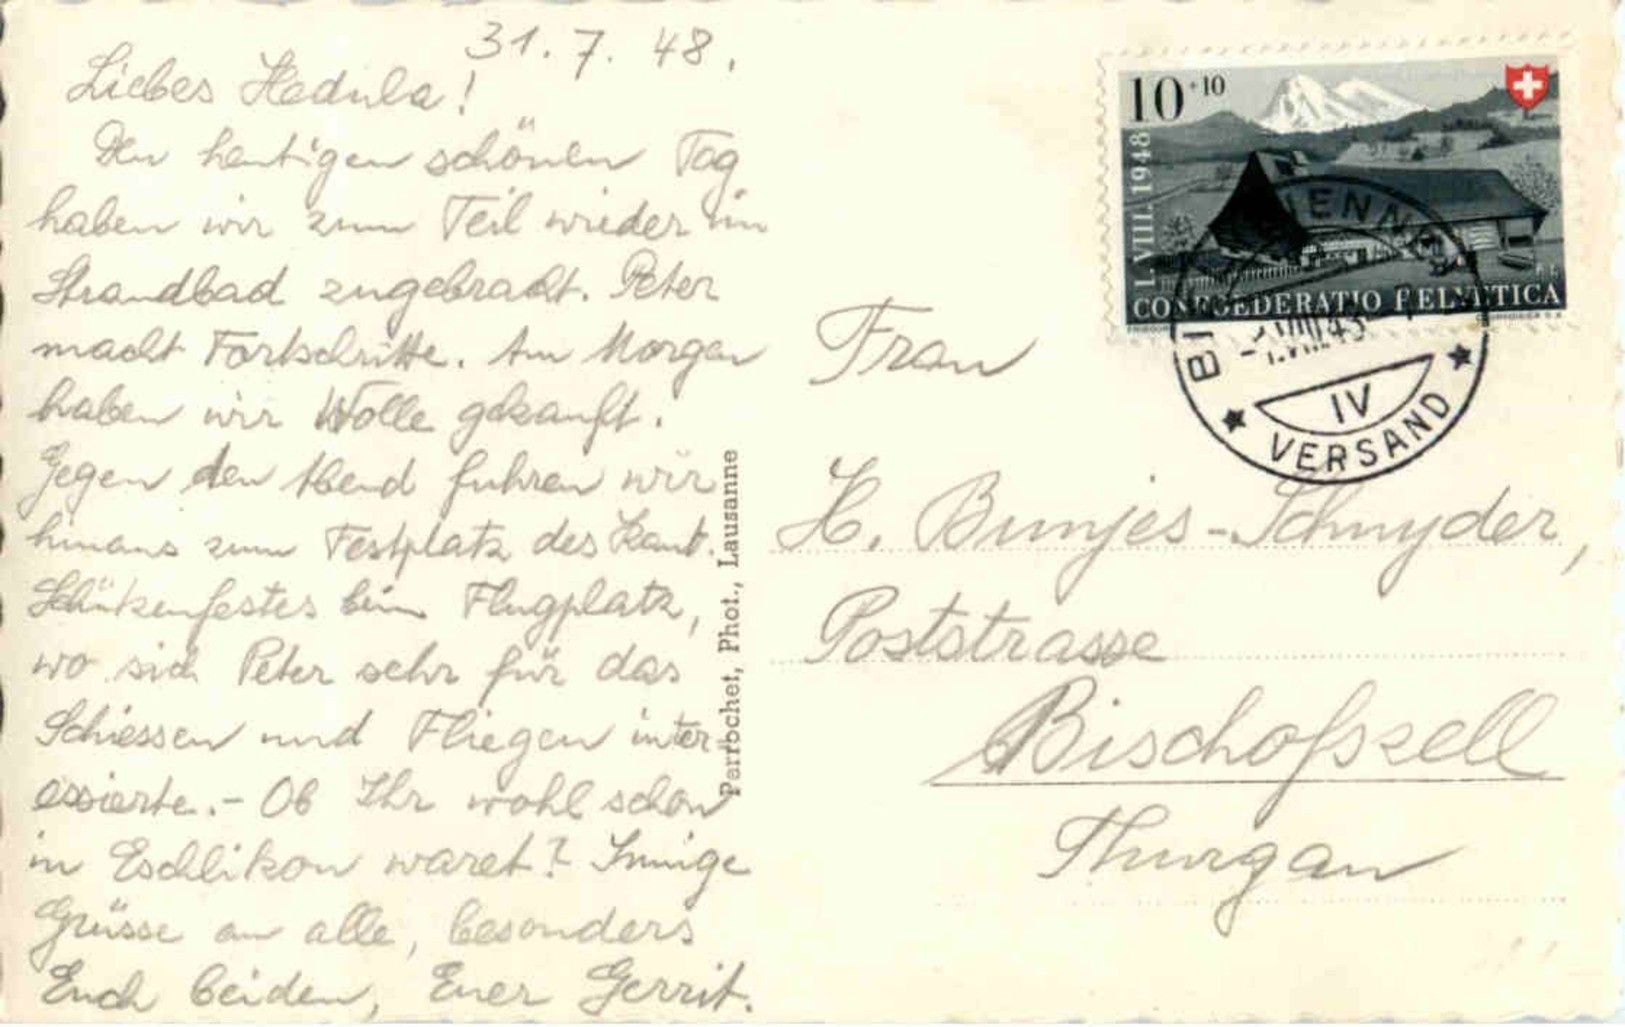 31.7.48.
Liebes Hedula!
Den heutigen schönen Tag
haben wir zum Teil wieder im
Strandbad zugebracht. Peter
macht Fortschritte. Am Morgen
haben wir Wolle gekauft.
Gegen den Abend fuhren wir
hinaus zum Festplatz des Kant.
Schützenfestes beim Flugplatz,
wo sich Peter sehr für das
Schiessen und Fliegen inter-
essierte.- Ob Ihr wohl schon
in Eschlikon waret? Innige
Grüsse an alle, besonders
Euch beiden, Euer Gerrit.
Perrochet, Phot., Lausanne
10+10
I. VIII. 1948
CONFOEDERATIO HELVETICA
VIII.48
IV
VERSAND
Frau
H. Bunjes-Schnyder,
Poststrasse
Bischofszell
Thurgau